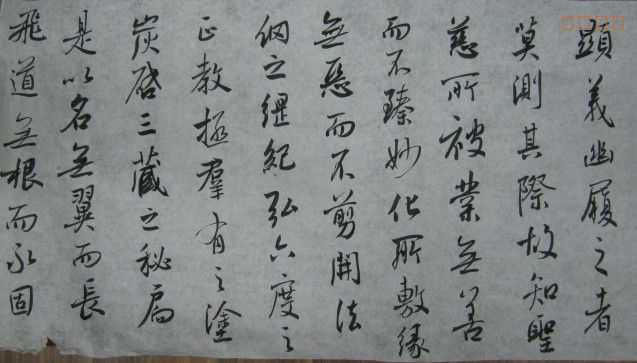 顯義幽履之者
莫測其際故知聖
慈所被業無善
而不臻妙化所敷緣
無惡而不剪開法
網之綱紀弘六度之
正教拯羣有之塗
炭啓三藏之秘扃
是以名無翼而長
飛道無根而永固